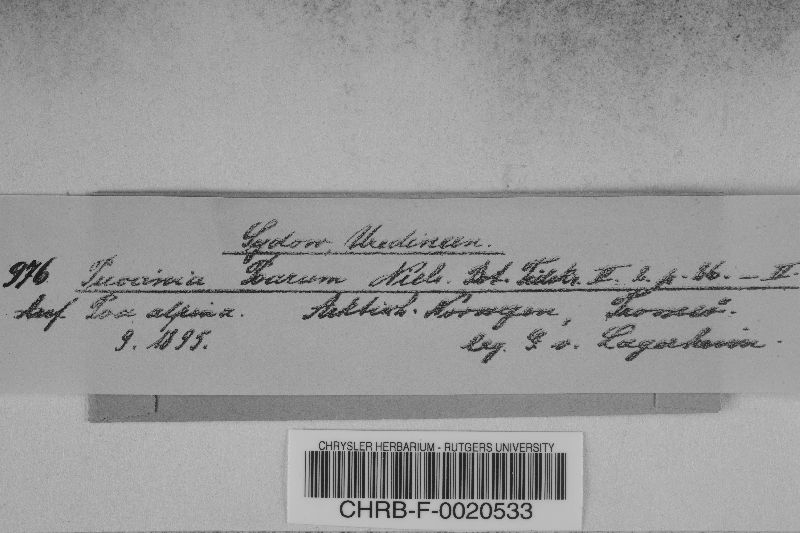 Sydow, Uredineen.
976 Puccinia Poarum Niels. Bot. Tidskr. II. 2. p. 26. — II
Auf Poa alpina. Arktisch. Norwegen, Tromsö.
9. 1895. leg. G. v. Lagerheim.
CHRYSLER HERBARIUM - RUTGERS UNIVERSITY
CHRB-F-0020533